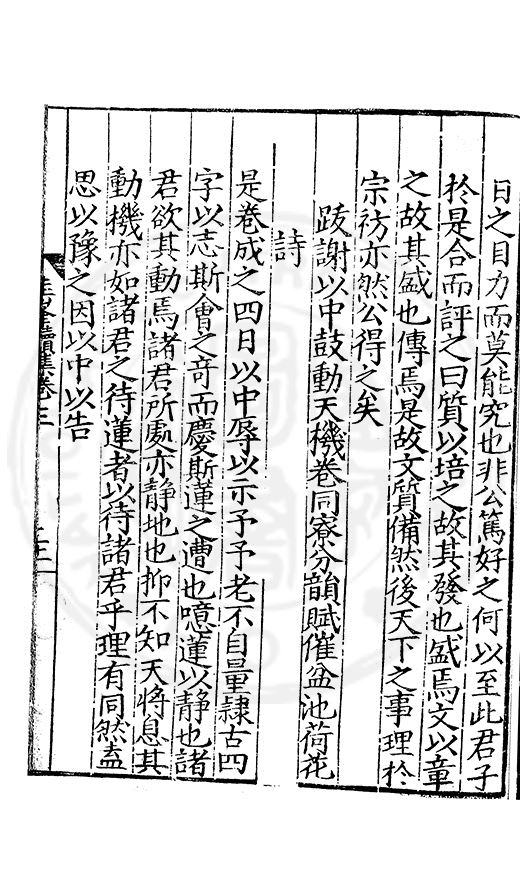 日之目力而莫能究也非公篤好之何以至此君子
於是合而評之曰質以培之故其發也盛焉文以章
之故其盛也傳焉是故文質備然後天下之事理於
宗祊亦然公得之矣
跋謝以中鼓動天機卷同寮分韻賦催盆池荷花
詩
是卷成之四日以中辱以示予予老不自量隷古四
字以志斯會之奇而慶斯蓮之遭也噫蓮以靜也諸
君欲其動焉諸君所處亦靜地也抑不知天將息其
動機亦如諸君之待蓮者以待諸君乎理有同然盍
思以豫之因以中以告
集卷三